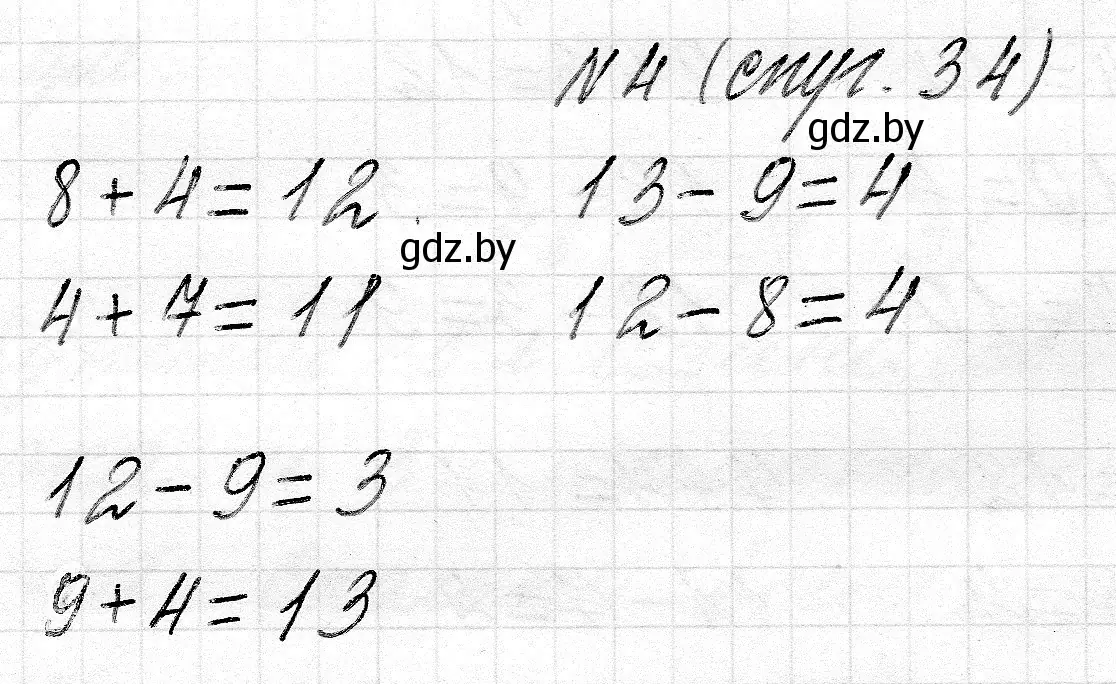 №4 (спуг. 34)
gdz.by
8 + 4 = 12
13 - 9 = 4
gdz.by
4 + 7 = 11
12 - 8 = 4
12 - 9 = 3
9 + 4 = 13